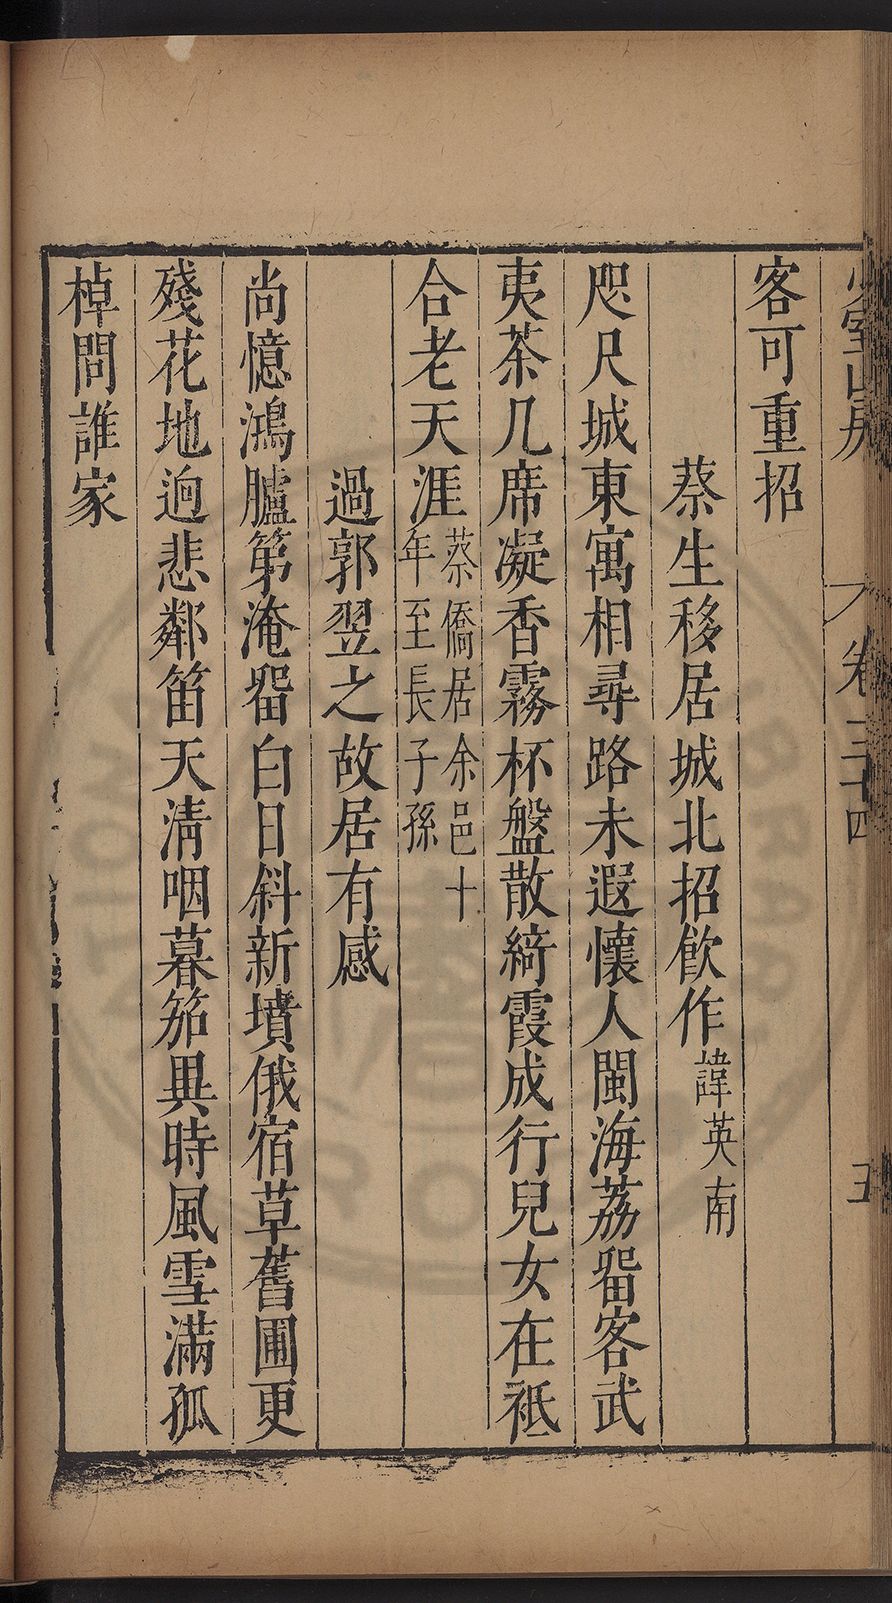 室山房
卷二十四
五
客可重招
蔡生移居城北招飲作諱英南
咫尺城東寓相尋路未遐懷人閩海荔畱客武
夷茶几席凝香霧杯盤散綺霞成行兒女在祗
合老天涯蔡僑居余邑十
年至長子孫
過郭翌之故居有感
尚憶鴻臚第淹畱白日斜新墳俄宿草舊圃更
殘花地逈悲鄰笛天清咽暮笳異時風雪滿孤
棹問誰家